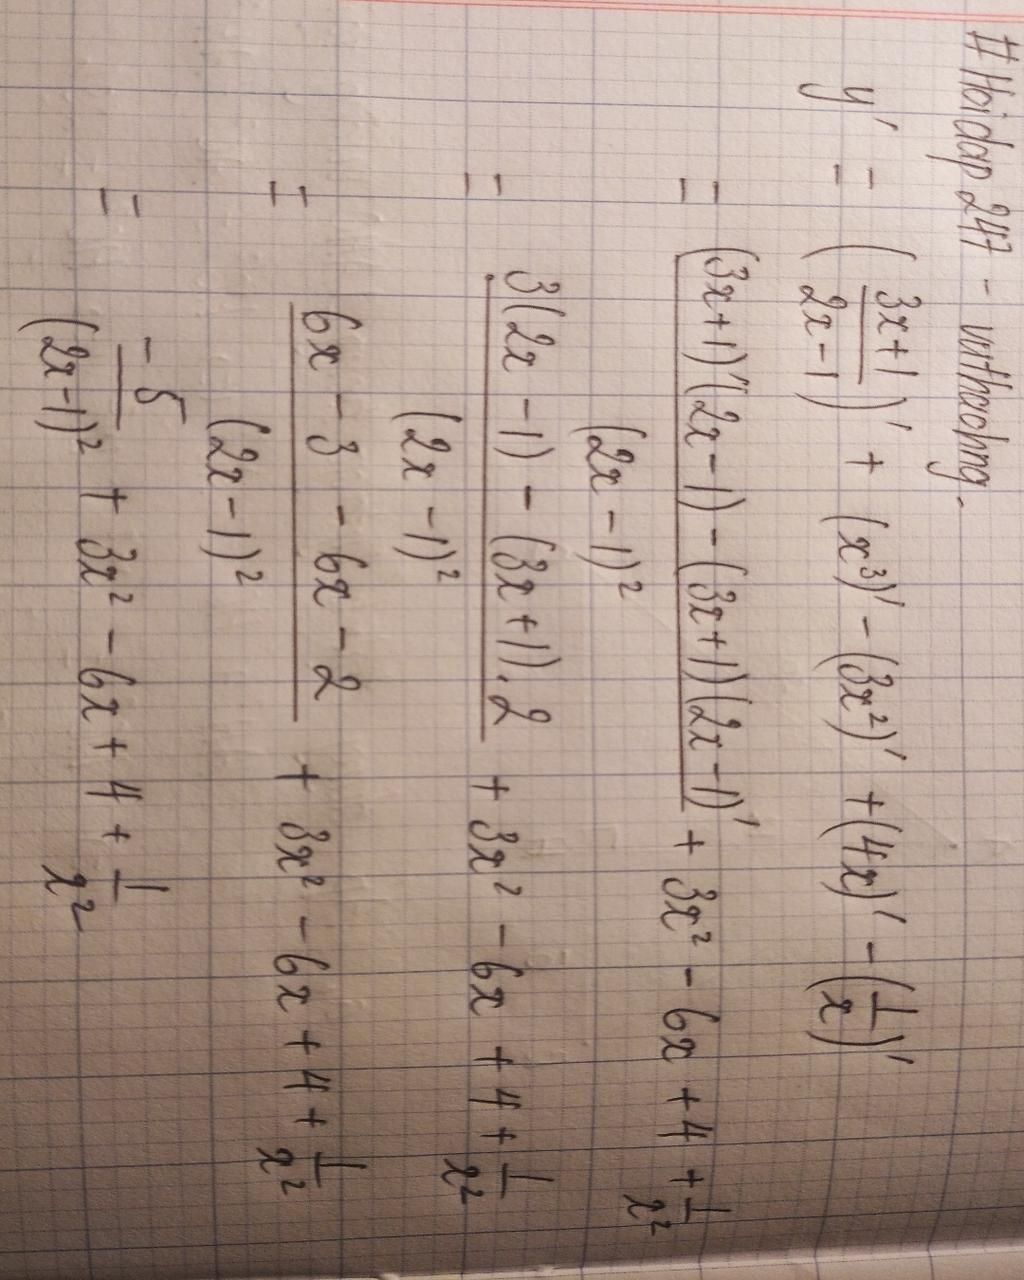 #Hoidap 247 - vuthachng.
y' = (3x+1 / 2x-1)' + (x³)' - (3x²)' + (4x)' - (1/x)'
= (3x+1)'(2x-1) - (3x+1)(2x-1)' / (2x-1)² + 3x² - 6x + 4 + 1/x²
= 3(2x-1) - (3x+1).2 / (2x-1)² + 3x² - 6x + 4 + 1/x²
= 6x - 3 - 6x - 2 / (2x-1)² + 3x² - 6x + 4 + 1/x²
= -5 / (2x-1)² + 3x² - 6x + 4 + 1/x²